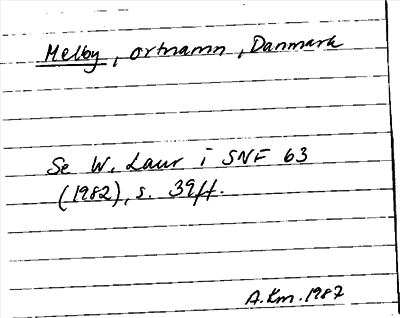 Melby, ortnamn, Danmark
Se W. Laur i SNF 63
(1982), s. 39ff.
A.Km. 1987